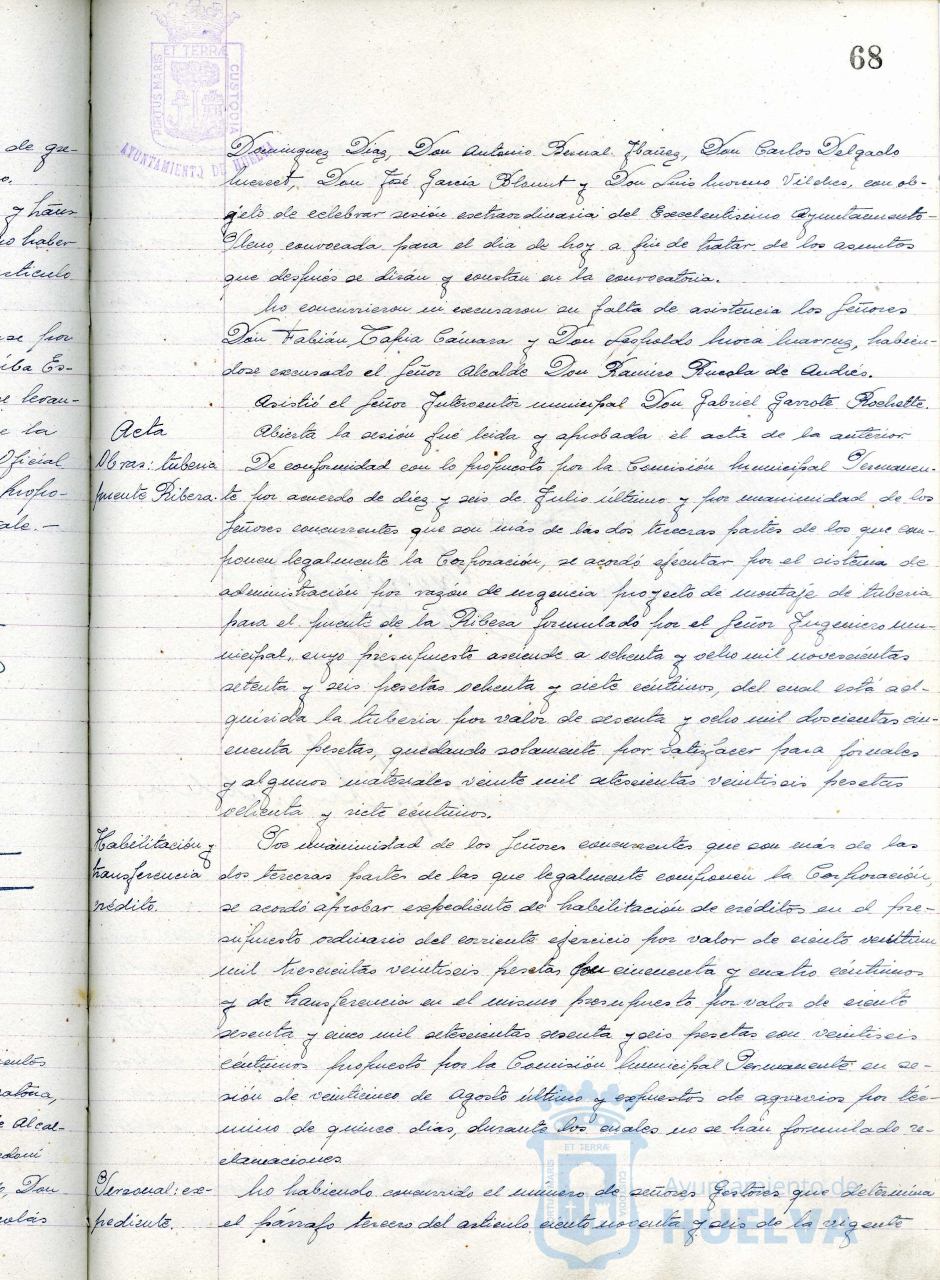 68
PORTUS MARIS ET TERRÆ CUSTODIA
AYUNTAMIENTO DE HUELVA
de ge-
o.
y trans
no haber
artículo
se por
iba Es-
e levan-
e la
Oficial
propo-
ale.—
ientos
atoria,
e Alcal-
o, Don
olás
Dominguez Diaz, Don Antonio Bernal Ibañez, Don Carlos Delgado
Don José García Blount y Don Luis Moreno Vilches, con ob-
jeto de celebrar sesión extraordinaria del Excelentisimo Ayuntamiento
Pleno, convocada para el dia de hoy a fin de tratar de los asuntos
que después se dirán y constan en la convocatoria.
No concurrieron ni excusaron su falta de asistencia los Señores
Don Fabián Tapia Cámara y Don Leopoldo Mora habien-
dose excusado el Señor Alcalde Don Ramiro Rueda de Andrés.
Asistió el Señor Interventor municipal Don Gabriel Garrote Rochette.
Acta
Abierta la sesión fué leida y aprobada el acta de la anterior
Obras: tuberia
puente Ribera.
De conformidad con lo propuesto por la Comisión Municipal Permanen-
te por acuerdo de diez y seis de Julio último y por unanimidad de los
Señores concurrentes que son más de las dos terceras partes de los que com-
ponen legalmente la Corporación, se acordó ejecutar por el sistema de
administración por razón de urgencia proyecto de montaje de tuberia
para el puente de la Ribera formulado por el Señor Ingeniero mu-
nicipal, cuyo presupuesto asciende a ochenta y ocho mil novescientas
setenta y seis pesetas ochenta y siete céntimos, del cual está ad-
quirida la tuberia por valor de sesenta y ocho mil doscientas cin-
cuenta pesetas, quedando solamente por satisfacer para jornales
y algunos materiales veinte mil setescientas veintiseis pesetas
ochenta y siete céntimos.
Habilitación y
transferencia
crédito.
Por unanimidad de los Señores concurrentes que son más de las
dos terceras partes de las que legalmente componen la Corporación,
se acordó aprobar expediente de habilitación de créditos en el pre-
supuesto ordinario del corriente ejercicio por valor de ciento veintiun
mil trescientas veintiseis pesetas con cincuenta y cuatro céntimos
y de transferencia en el mismo presupuesto por valor de ciento
sesenta y cinco mil setescientas sesenta y seis pesetas con veintiseis
céntimos propuesto por la Comisión Municipal Permanente en se-
sión de veinticinco de Agosto último y expuestos de agravios por tér-
mino de quince dias, durante los cuales no se han formulado re-
clamaciones.
Personal: ex-
pediente.
No habiendo concurrido el numero de señores Gestores que determina
el párrafo tercero del articulo ciento noventa y seis de la vigente
ET TERRÆ
PORTUS MARIS
CUSTODIA
Ayuntamiento de
HUELVA